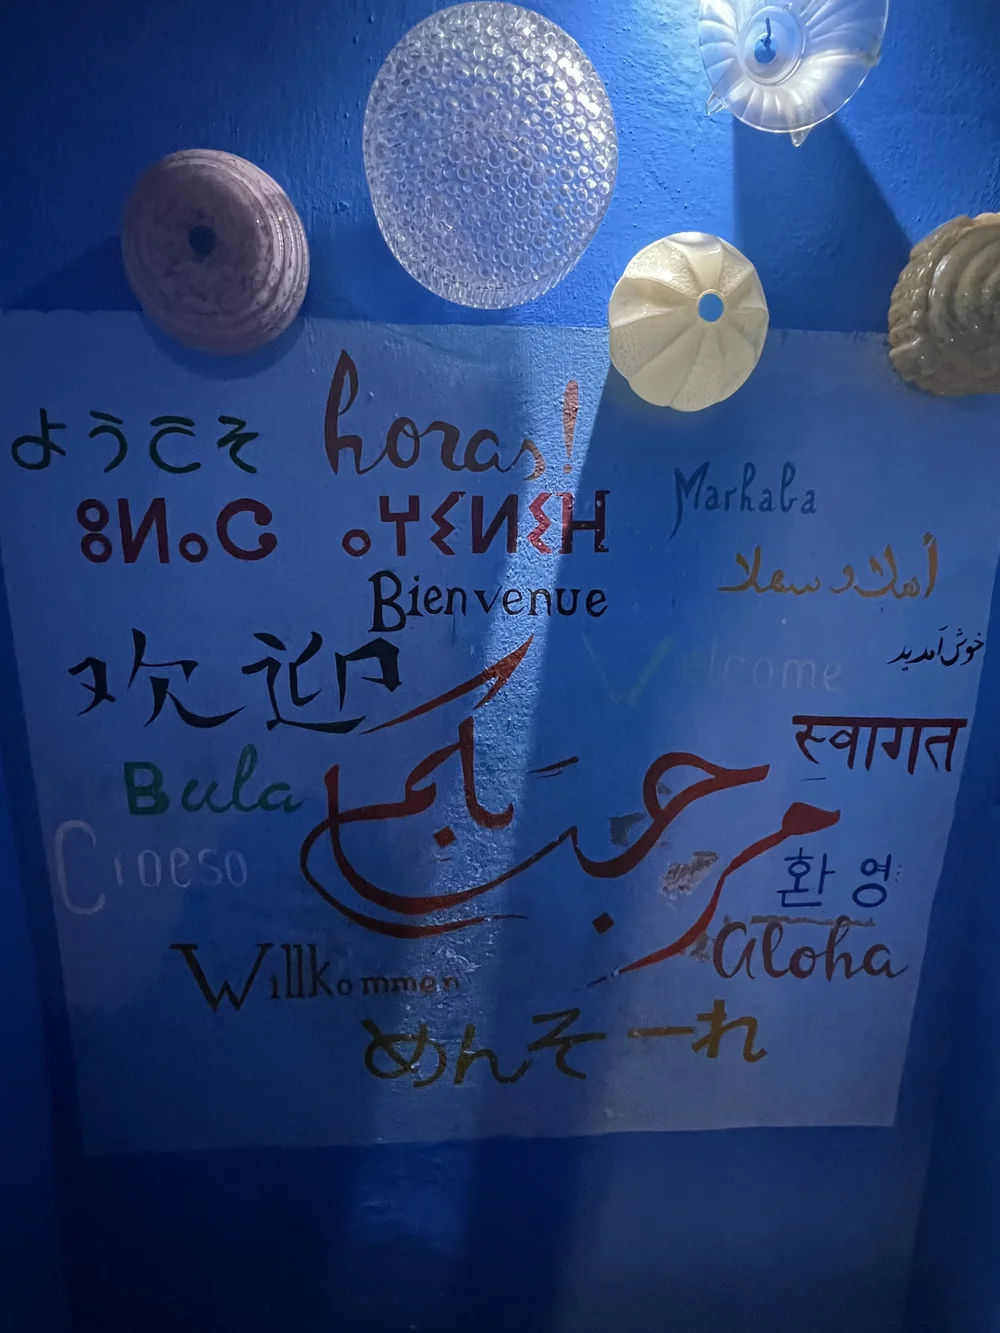 ようこそ
horas!
ⵓⵍⴰⵛ ⴰⵖⵉⵍⵉⴼ
Marhaba
Bienvenue
أهلا و سهلا
خوش آمدید
欢迎
Welcome
स्वागत
Bula
مرحبا بكم
Croeso
환영
Aloha
Willkommen
めんそーれ